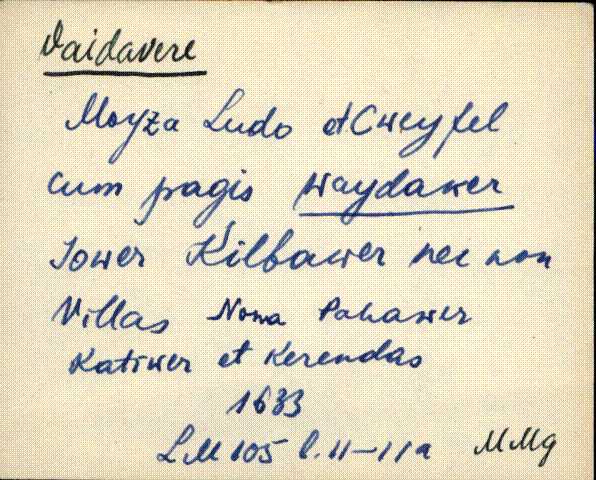 Vaidavere
Moyza Ludo et Cweyfel
cum pagis waydawer
Sower Kilbawer nec non
Villas Nowa Pahawer
Katiwer et Kerendas
1633
LM 105 l. 11-11a MMg